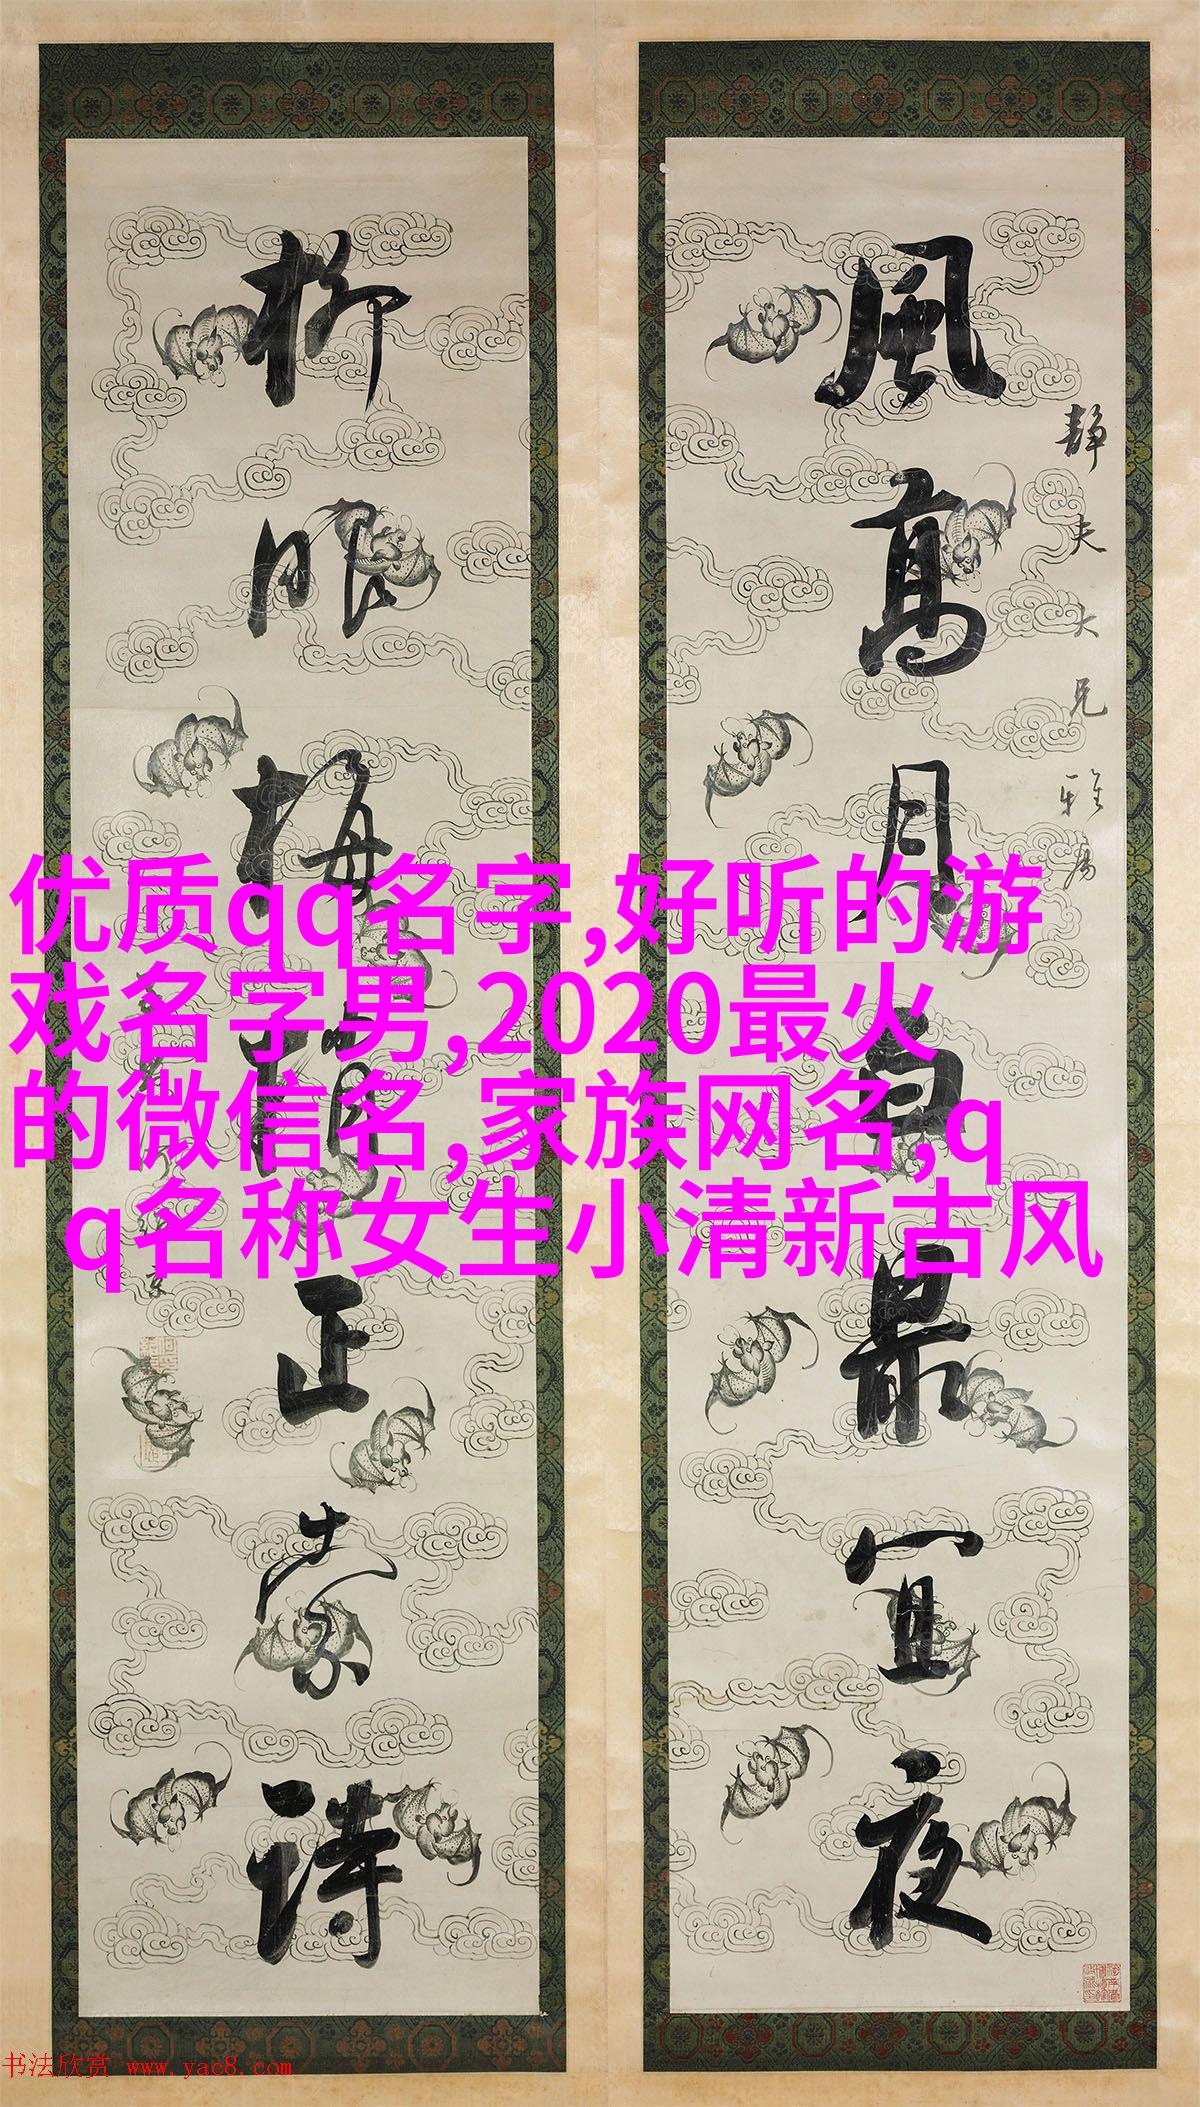 風高月白最宜夜
靜夫大兄雅屬
柳眼梅梢正索詩
优质qq名字,好听的游
戏名字男,2020最火
的微信名,家族网名,q
q名称女生小清新古风
书法欣赏 www.yac8.com